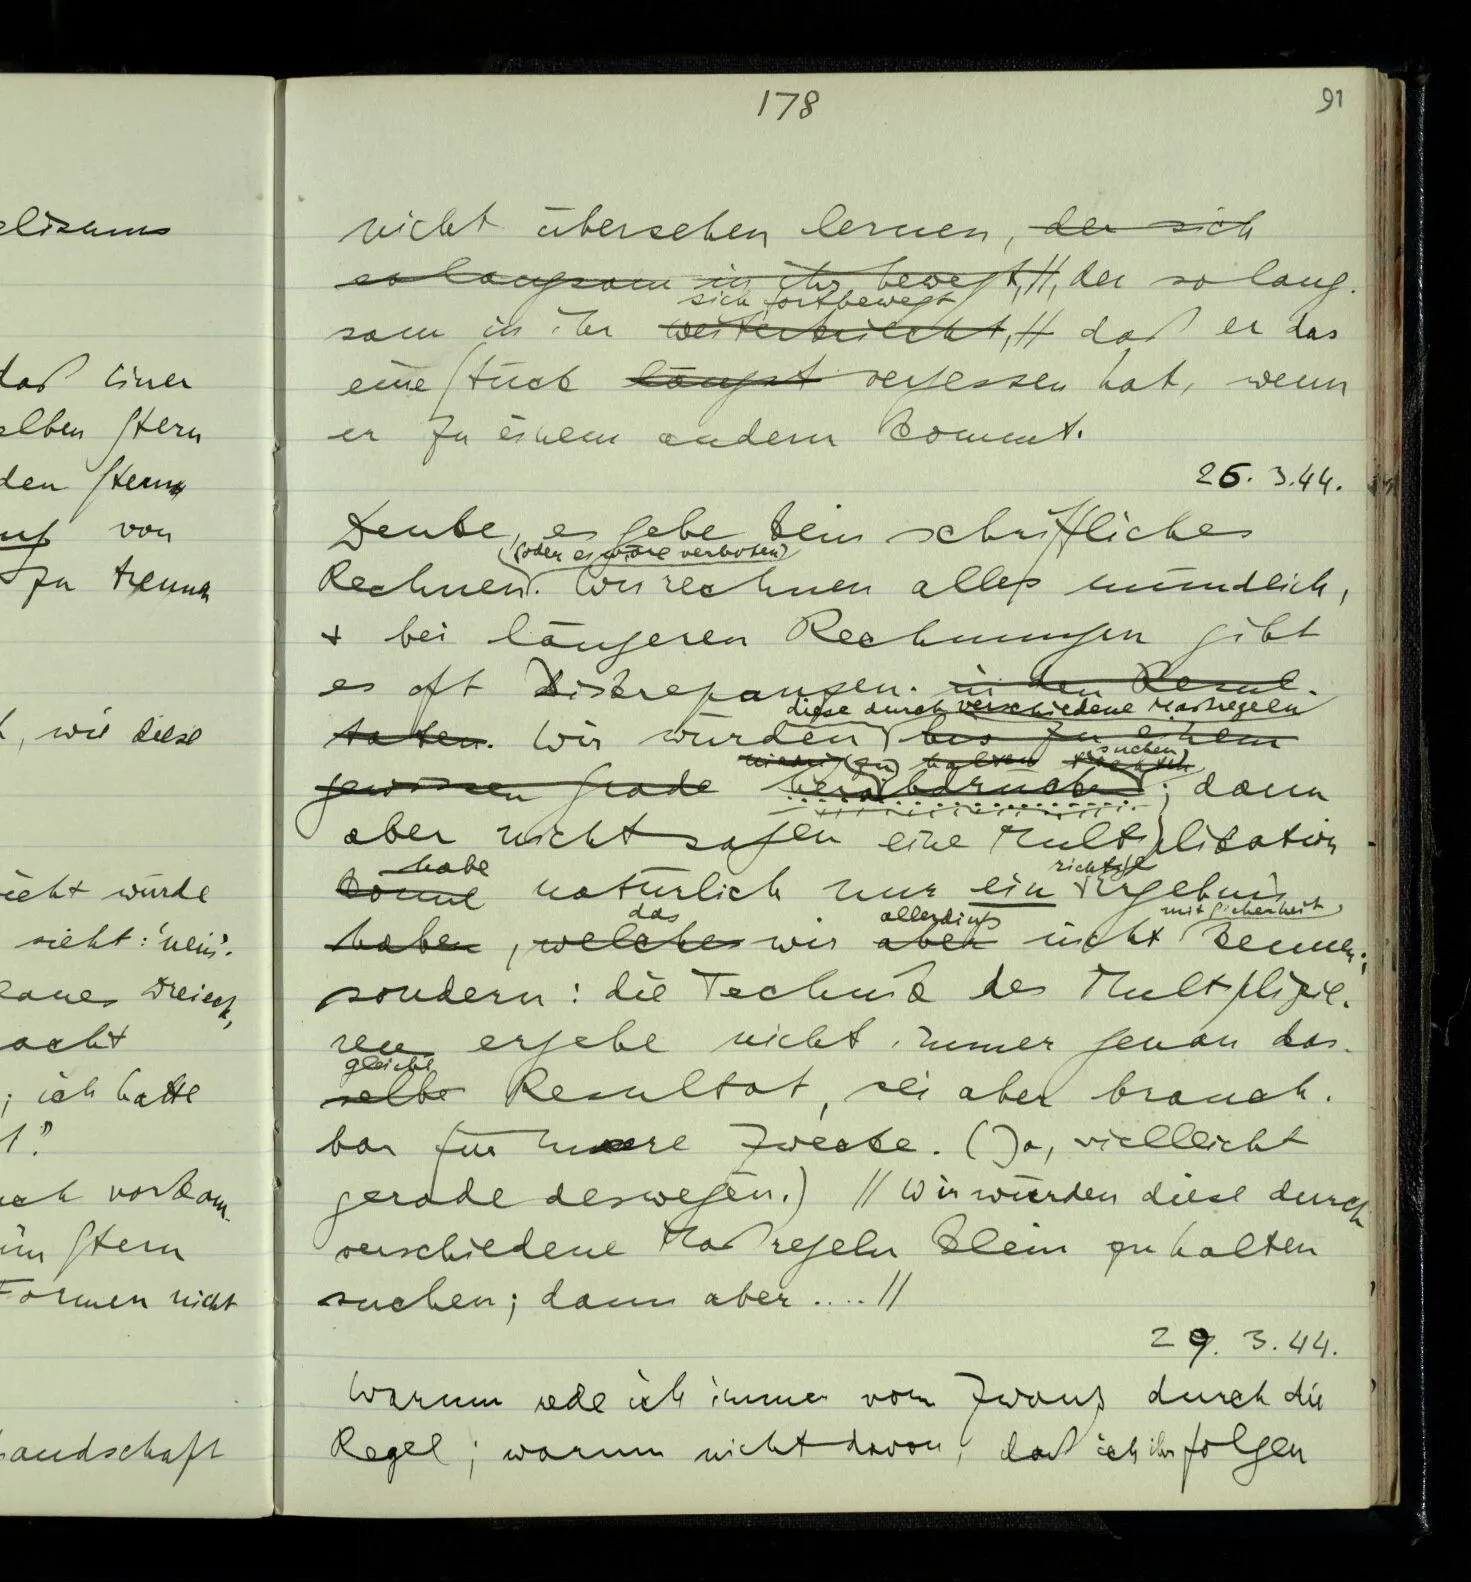 178
91
nicht übersehen lernen, der sich
so langsam in ihr bewegt, //, der so lang-
sich fortbewegt
sam in ihr weiterkriecht, // daß er das
eine Stück längst vergessen hat, wenn
er zu einem andern kommt.
26. 3.44.
Denke, es gebe kein schriftliches
(oder es wäre verboten)
Rechnen. Wir rechnen alles mündlich,
+ bei längeren Rechnungen gibt
es oft Diskrepanzen. in den Resul-
diese durch verschiedene Maßregeln
taten. Wir würden bis zu einem
halten suchen
gewissen Grade herabdrücken; dann
aber nicht sagen eine Multiplikation
habe richtige
könne natürlich nur ein Ergebnis
das allerdings mit Sicherheit
haben, welches wir aber nicht kennen;
sondern: die Technik des Multiplizie-
ren ergebe nicht immer genau das-
gleiche
selbe Resultat, sei aber brauch-
bar für unsere Zwecke. (Ja, vielleicht
gerade deswegen.) // Wir würden diese durch
verschiedene Maßregeln klein zu halten
suchen; dann aber .... //
29. 3.44.
Warum rede ich immer vom Zwang durch die
Regel; warum nicht davon, daß ich ihr folgen
daß einer
elben Stern
den Stern
von
zu trennen
, wie diese
nicht würde
sieht: 'nein'.
Dreieck,
acht
; ich hatte
vorkam
im Stern
Formen nicht
andschaft